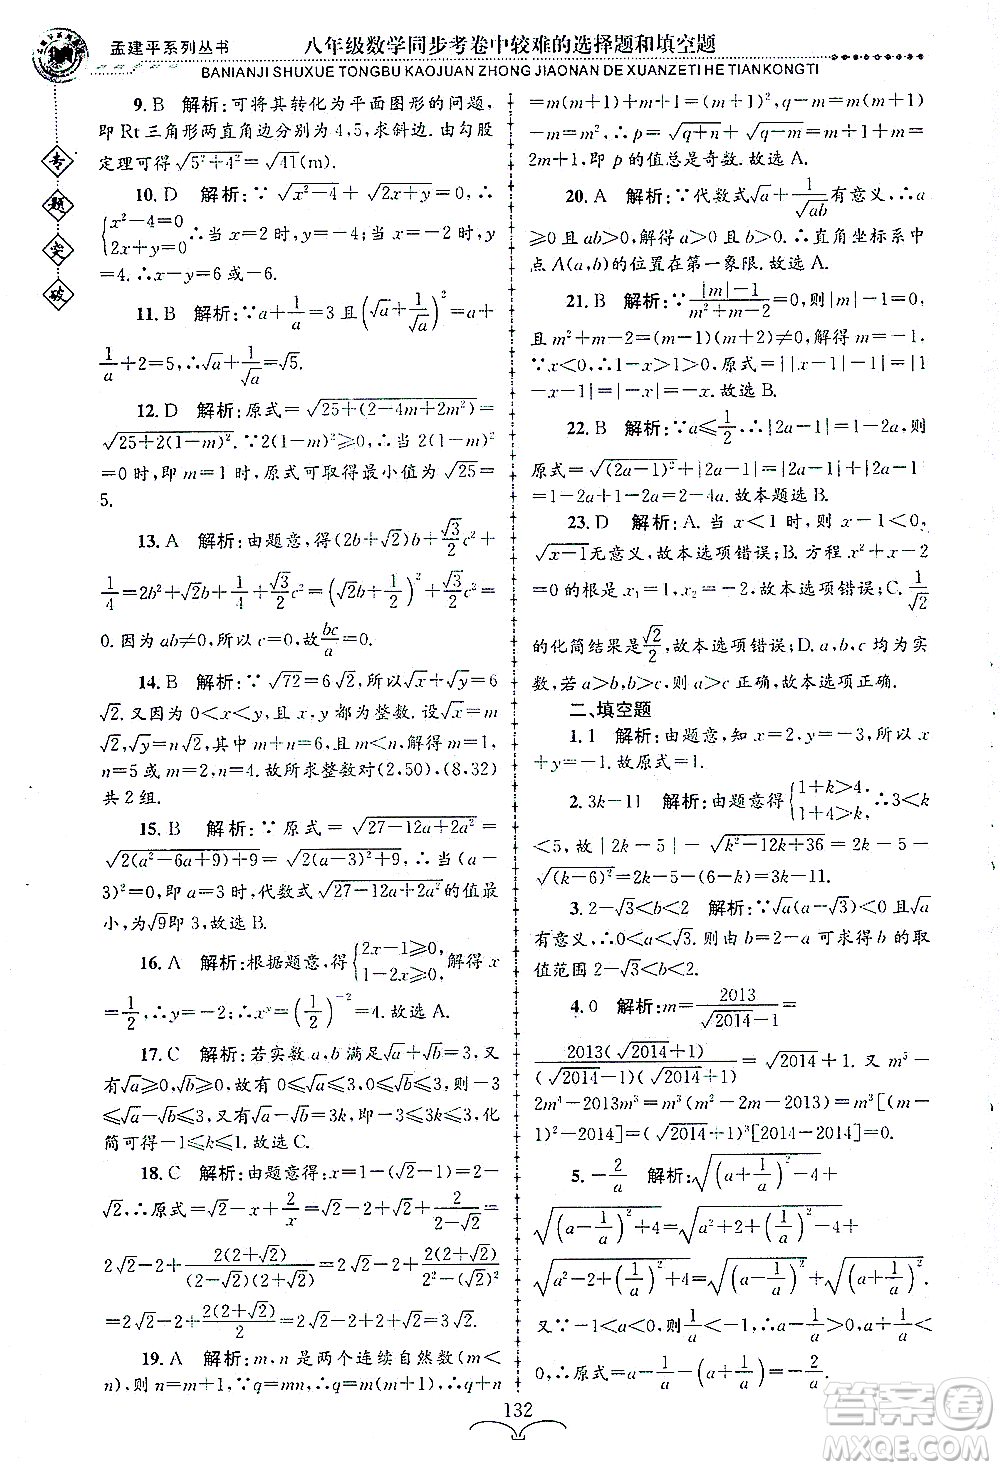 孟建平系列丛书
八年级数学同步考卷中较难的选择题和填空题
BANIANJI SHUXUE TONGBU KAOJUAN ZHONG JIAONAN DE XUANZETI HE TIANKONGTI
专
题
突
破
9. B 解析:可将其转化为平面图形的问题,
即 Rt 三角形两直角边分别为 4,5,求斜边. 由勾股
定理可得√(5²+4²)=√41(m).
10. D 解析:∵√(x²−4)+√(2x+y)=0,∴
{x²−4=0 2x+y=0 ∴当 x=2 时,y=−4;当 x=−2 时,y
=4. ∴x−y=6 或−6.
11. B 解析:∵a+1/a=3 且(√a+1/√a)²=a+
1/a+2=5,∴√a+1/√a=√5.
12. D 解析:原式=√(25+(2−4m+2m²))=
√(25+2(1−m)²). ∵2(1−m)²⩾0,∴当 2(1−m)²
=0 时,即 m=1 时,原式可取得最小值为√25=
5.
13. A 解析:由题意,得(2b+√2)b+√3/2 c²=
1/4=2b²+√2b+1/4+√3/2 c²=(√2b+1/2)²+√3/2 c²=
0. 因为 ab≠0,所以 c=0,故 bc/a=0.
14. B 解析:∵√72=6√2,所以√x+√y=6
√2. 又因为 0<x<y,且 x,y 都为整数. 设√x=m
√2,√y=n√2,其中 m+n=6,解得 m=1,
n=5 或 m=2,n=4. 故所求整数对(2,50),(8,32)
共 2 组.
15. B 解析:∵原式=√(27−12a+2a²)=
√(2(a²−6a+9)+9)=√(2(a−3)²+9),∴当(a−
3)²=0,即 a=3 时,代数式√(27−12a+2a²)的值最小,
为√9即 3,故选 B.
16. A 解析:根据题意,得{2x−1⩾0, 1−2x⩾0, 解得 x
=1/2,∴y=2,∴xʸ=(1/2)⁻²=4. 故选 A.
17. C 解析:若实数 a,b 满足√a+√b=3,又
有√a⩾0,√b⩾0,故有 0⩽√a⩽3,0⩽√b⩽3,则−3
⩽√a−√b⩽3,又√a−√b=3k,即−3⩽3k⩽3,化
简可得−1⩽k⩽1. 故选 C.
18. C 解析:由题意得:x=1−(√2−1)=2−
√2,∴原式=√2−x+2/x=√2−2+√2+2/(2−√2)=
2√2−2+2(2+√2)/((2−√2)(2+√2))=2√2−2+2(2+√2)/(2²−√2²)
=2√2−2+2(2+√2)/2=2√2−2+2+√2=3√2.
19. A 解析:m,n 是两个连续自然数(m<
n),则 n=m+1,∵q=mn,∴q+n=mn+n
=n(m+1)=(m+1)²,q−m=m(m+1)
−m=m²,∴p=√(q+n)+√(q−m)=m+1+m=
2m+1,即 p 的值总是奇数. 故选 A.
20. A 解析:∵代数式√a+1/√ab有意义,∴a
⩾0 且 ab>0,解得 a>0 且 b>0. ∴直角坐标系中
点 A(a,b)的位置在第一象限. 故选 A.
21. B 解析:∵(|m|−1)/(m²+m−2)=0,则|m|−1=0,
且 m²+m−2=(m−1)(m+2)≠0,解得 m=−1.
∵x<0,∴1−x>1>0. 原式=||x−1|+m|
=|1−x−1|=|−x|=−x. 故选 B.
22. B 解析:∵a⩽1/2,∴|2a−1|=1−2a,∴
原式=√((2a−1)²)+|2a−1|=|2a−1|+|2a−1|
=1−2a+1−2a=2−4a. 故本题选 B.
23. D 解析:A. 当 x<1 时,则 x−1<0,
√(x−1)无意义,故本选项错误;B. 方程 x²+x−2
=0 的根是 x₁=1,x₂=−2,故本选项错误;C. 1/√2
的化简结果是√2/2,故本选项错误;D. a,b,c 都为实
数,若 a>b,b>c,则 a>c 正确,故本选项正确.
二、填空题
1. 1 解析:由题意,知 x=2,y=−3,所以
x+y=−1. 故原式=1.
2. 3k−11 解析:由题意得{1+k>4, 1+4>k, ∴3<k
<5,故|2k−5|−√(k²−12k+36)=2k−5−
√((k−6)²)=2k−5−[−(k−6)]=3k−11.
3. 2−√3<b<2 解析:∵√a(√a−√3)<0 且√a
有意义,∴0<√a<√3. 则由 b=2−√a,可求得 b 的取
值范围 2−√3<b<2.
4. 0 解析:m=2013/(√2014−1)=
2013(√2014+1)/((√2014−1)(√2014+1))=√2014+1. 又 m⁵−
2m⁴−2013m³=m³(m²−2m−2013)=m³[(m−
1)²−2014]=(√2014+1)³[2014−2014]=0.
5. −2/a 解析:√((a+1/a)²−4)+
√((a−1/a)²+4)=√(a²+2+(1/a)²−4)+
√(a²−2+(1/a)²+4)=√((a−1/a)²)+√((a+1/a)²).
又∵−1<a<0,∴1/a<−1,∴a−1/a>0,a+1/a
<0. ∴原式=a−1/a−(a+1/a)=−2/a.
132
答案圈
MXQE.COM